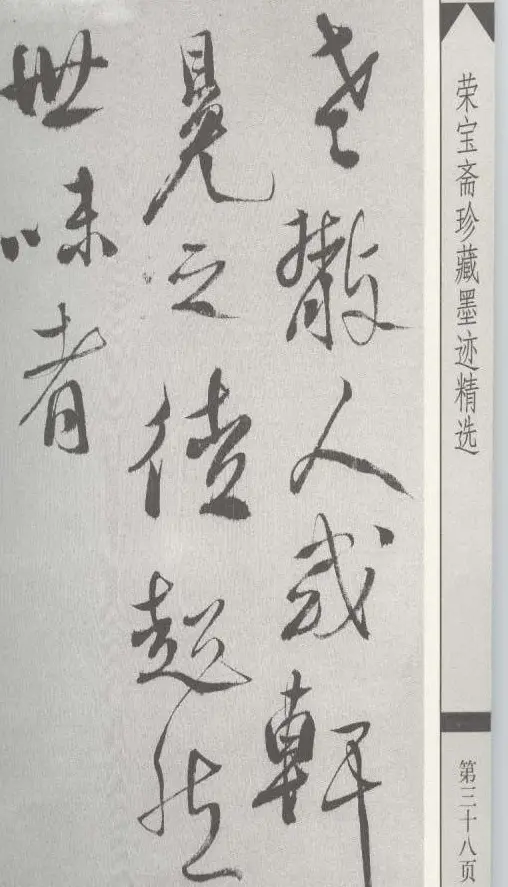 荣宝斋珍藏墨迹精选
第三十八页
老散人或軒
冕之徒超然
世味者